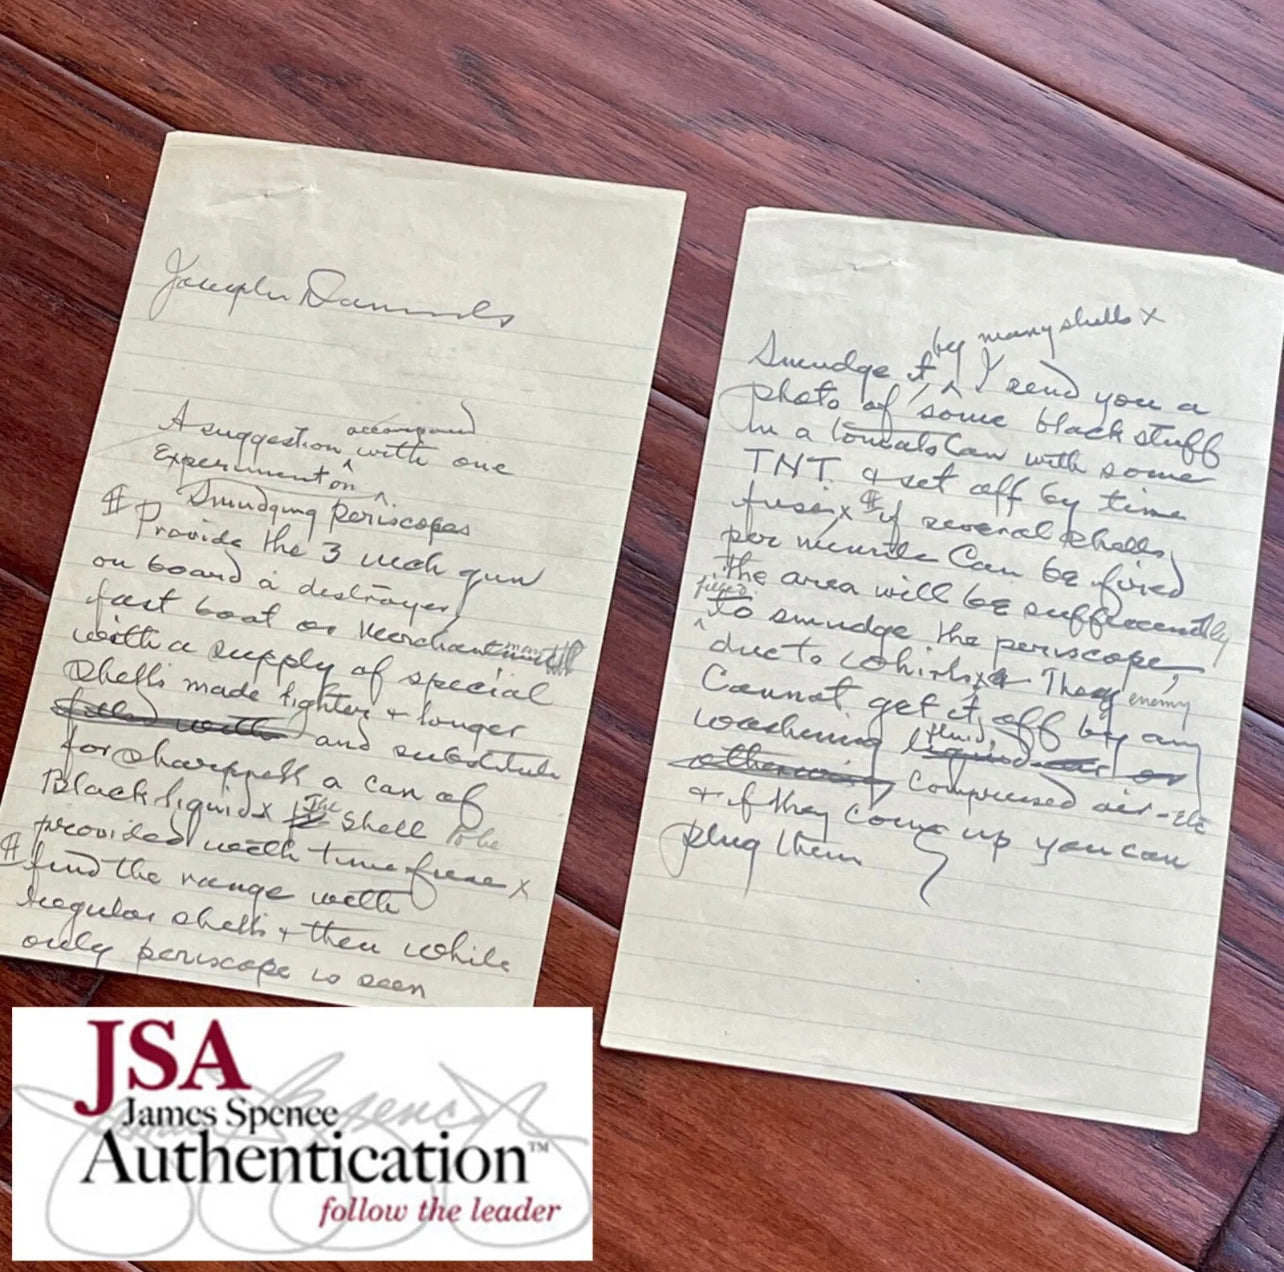 Joseph Daniels
A suggestion accompanied with one
Experiment on
Smudging periscopes
# Provide the 3 inch gun
on board a destroyer
fast boat or Merchantman
with a supply of special
shells made lighter & longer
filled with and substitute
for sharpnell a can of
Black liquid x The shell to be
provided with time fuse x
# find the range with
regular shells & then while
only periscope is seen
by many shells x
Smudge it, I send you a
photo of some black stuff
in a Can with some
TNT. & set off by time
fuse x # if several shells
per minute Can be fired
the area will be sufficiently
filled to smudge the periscope,
due to whirls x They enemy
Cannot get it off by any
washing fluid, liquid or
otherwise compressed air - etc
& if they come up you can
plug them
JSA
James Spence
Authentication™
follow the leader